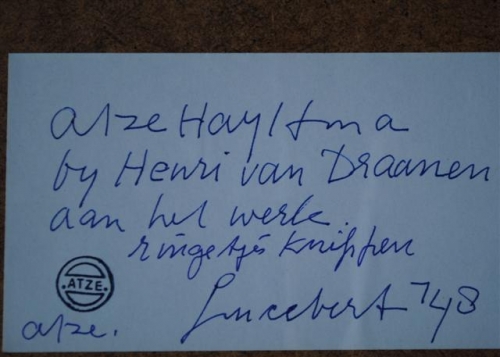 atze Hayltma
by Henri van Draanen
aan het werk.
ringetjes knippen
ATZE.
atze.
Lucebert 7/48